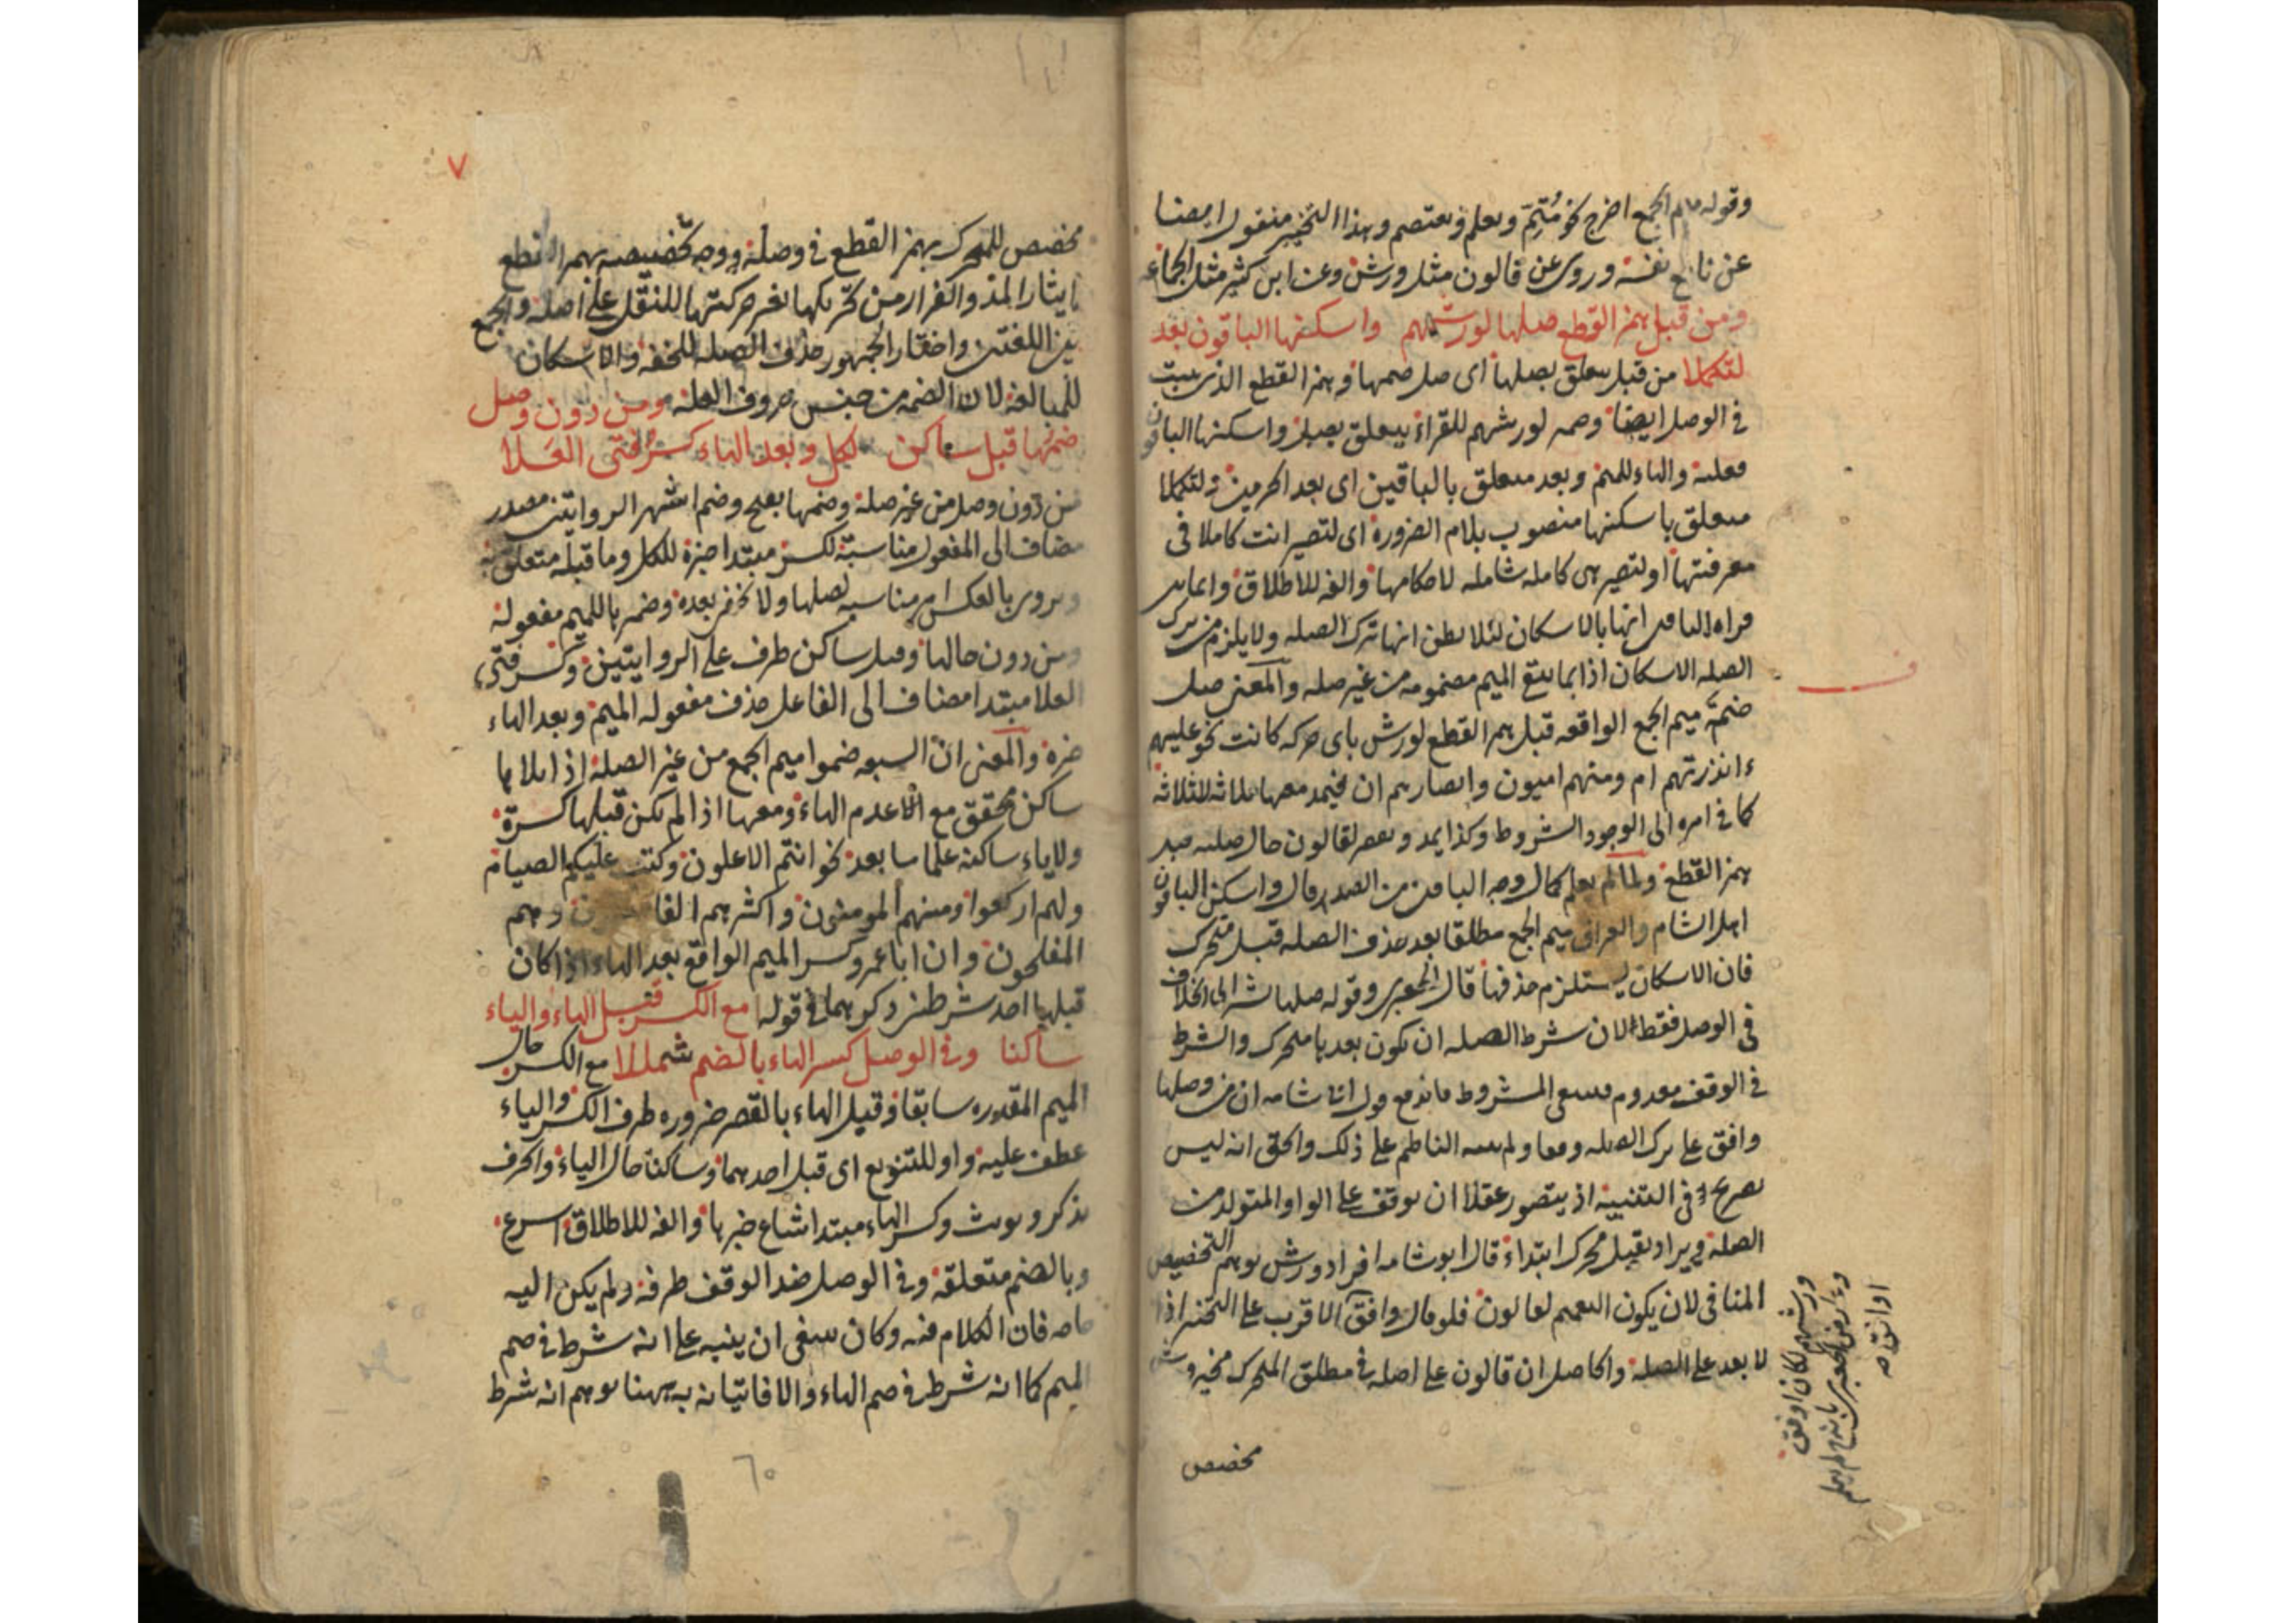 وقوله ميم الجمع اخرج نحو مُتِمّ ويعلم ويعتصم وهذا التخيير منقول ايضا
عن نافع نفسه وروى عن قالون مثل ورش وعن ابن كثير مثل الجماعه
ومن قبل همز القطع صلها لورشهم واسكنها الباقون بعد
لتكملا من قبل متعلق بصلها اى صل ضمها وهمز القطع الذى يثبت
في الوصل ايضا وضمه لورشهم للقراء يتعلق بصل واسكنها الباقون
فعليه والهاء للميم وبعد متعلق بالباقين اى بعد الحرمين ولتكملا
متعلق باسكنها منصوب بلام الضروره اى لتصير انت كاملا فى
معرفتها او لتصير هى كامله شامله لاحكامها والفه للاطلاق وانما بين
قراه الباقين انها بالاسكان لئلا يظن انها ترك الصله ولا يلزم من ترك
الصله الاسكان اذ ربما تبقى الميم مضمومه من غير صله والمعنى صل
ضمة ميم الجمع الواقعه قبل همز القطع لورش باى حركه كانت نحو عليهم
ءانذرتهم ام ومنهم اميون وانصارهم ان فيمد معها ثلاثه للثلاثه
كما في امره الى الوجود الشروط وكذا يمد ويقصر لقالون حال صلته قبل
همز القطع ولما لم يعلم كمال وجه الباقين من الضد قال واسكن الباقون
اهل الشام والعراق ميم الجمع مطلقا بعد حذف الصله قبل متحرك
فان الاسكان يستلزم حذفها قال الجعبرى وقوله صلها يشير الى الخلاف
فى الوصل فقط لان شرط الصله ان يكون بعدها متحرك والشرط
فى الوقف معدوم فينتفى المشروط فاندفع قول ابى شامه ان من وصلها
وافق على ترك الصله وقفا ولم ينبه الناظم على ذلك والحق انه ليس
بصريح فى التنبيه اذ يتصور عقلا ان يوقف على الواو المتولد من
الصله ويراد بقبل محرك ابتداء قال ابو شامه افراد ورش يوهم التخصيص
المنافى لان يكون التعميم لقالون فلو قال ووافق الاقرب على التخيير اذا
لا بعد على الصله والحاصل ان قالون على اصله في مطلق المتحرك مخير وورش
مخصص
ورشهم لكان اوفق
اوانق صـ
مخصص للمتحرك بهمز القطع في وصله ووجه تخصيصه بهمز القطع
ايثار المد والفرار من تحريكها بغير حركتها للنقل على اصله والجمع
بين اللغتين واختار الجمهور حذف الصله للخفه والاسكان
للمبالغه لان الضمه من جنس حروف العله ومن دون وصل
ضمها قبل ساكن لكل وبعد الهاء كسر فتى العلا
من دون وصل من غير صله وضمها بفتح وضم اشهر الروايتين مصدر
مضاف الى المفعول مناسبة لكسر مبتدا خبره للكل وما قبله متعلق به
ويروى بالعكس امر مناسبه لصلها ولا تخفى بعده وضمير ها للميم مفعوله
ومن دون حالها وقبل ساكن ظرف على الروايتين وكسر فتى
العلا مبتدا مضاف الى الفاعل حذف مفعوله الميم وبعد الهاء
خبره والمعنى ان السبعه ضموا ميم الجمع من غير الصله اذا تلاها
ساكن محقق مع عدم الهاء ومعها اذا لم يكن قبلها كسرة
ولا ياء ساكنه علما بعد نحو انتم الاعلون وكتب عليكم الصيام
ولهم اركعوا ومنهم المومنون واكثرهم الفاسقون وهم
المفلحون وان ابا عمرو كسر الميم الواقع بعد الهاء اذا كان
قبلها احد شرطين ذكرهما في قوله مع الكسر قبل الهاء والياء
ساكنا وفي الوصل كسر الهاء بالضم شمللا مع الكسر حال
الميم المقدره سابقا وقبل الهاء بالقصر ضروره ظرف الكسر والياء
عطف عليه واو للتنويع اى قبل احدهما وساكنا حال الياء والحرف
يذكر ويونث وكسر الهاء مبتدا شاع خبرها والفه للاطلاق اسرع
وبالضم متعلقه وفي الوصل ضد الوقف ظرفه ولم يكن اليه
حاجه فان الكلام فيه وكان ينبغى ان ينبه على انه شرط في ضم
الميم كما انه شرط في ضم الهاء والا فاتيانه به ههنا يوهم انه شرط
٧
٦٥